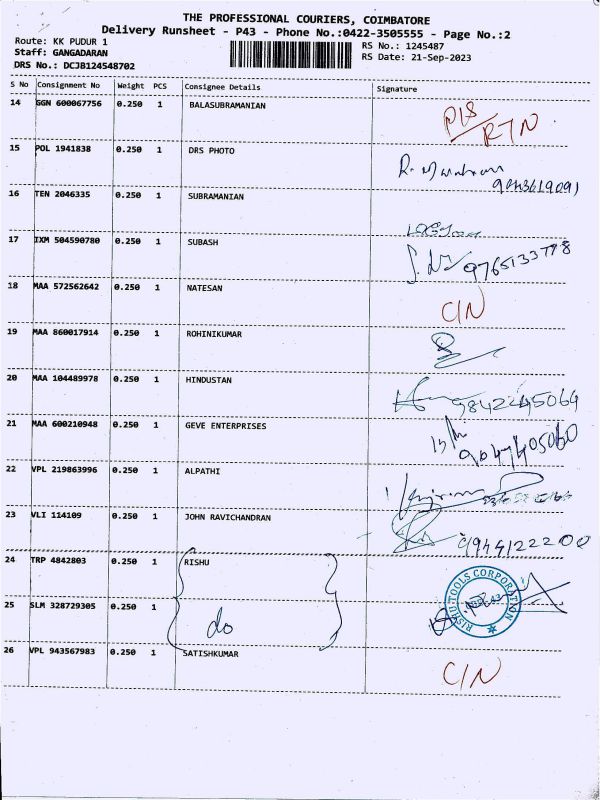 THE PROFESSIONAL COURIERS, COIMBATORE
Delivery Runsheet - P43 - Phone No.:0422-3505555 - Page No.:2
Route: KK PUDUR 1 RS No.: 1245487
Staff: GANGADARAN RS Date: 21-Sep-2023
DRS No.: DCJB124548702
S No Consignment No Weight PCS Consignee Details Signature
14 GGN 600067756 0.250 1 BALASUBRAMANIAN
RTN
15 POL 1941838 0.250 1 DRS PHOTO
16 TEN 2046335 0.250 1 SUBRAMANIAN
17 IXM 504590780 0.250 1 SUBASH
9765133778
18 MAA 572562642 0.250 1 NATESAN C/N
19 MAA 860017914 0.250 1 ROHINIKUMAR
20 MAA 104489978 0.250 1 HINDUSTAN 9842245064
21 MAA 600210948 0.250 1 GEVE ENTERPRISES
9047405060
22 VPL 219863996 0.250 1 ALPATHI
23 VLI 114109 0.250 1 JOHN RAVICHANDRAN
9944122200
24 TRP 4842803 0.250 1 RISHU
RISHU TOOLS CORPORATION
25 SLM 328729305 0.250 1
do
26 VPL 943567983 0.250 1 SATISHKUMAR C/N